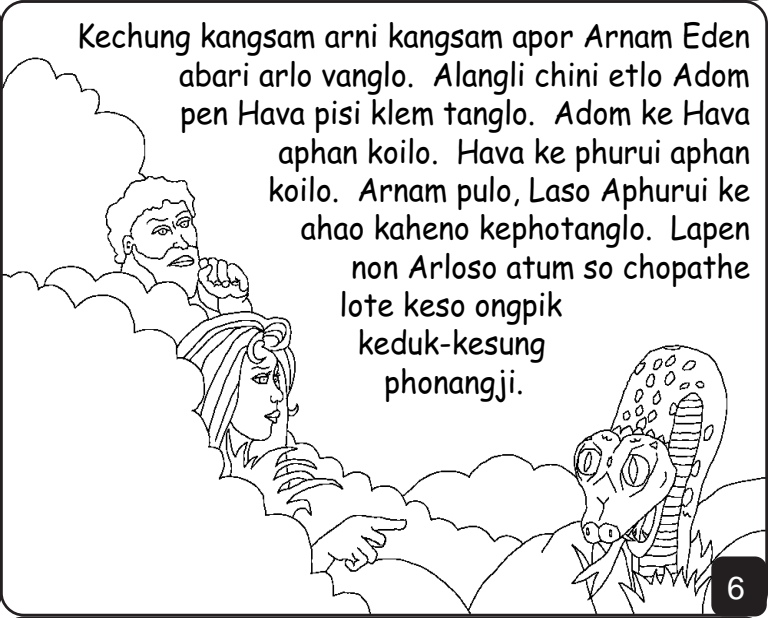 Kechung kangsam arni kangsam apor Arnam Eden
abari arlo vanglo. Alangli chini etlo Adom
pen Hava pisi klem tanglo. Adom ke Hava
aphan koilo. Hava ke phurui aphan
koilo. Arnam pulo, Laso Aphurui ke
ahao kaheno kephotanglo. Lapen
non Arloso atum so chopathe
lote keso ongpik
keduk-kesung
phonangji.
6